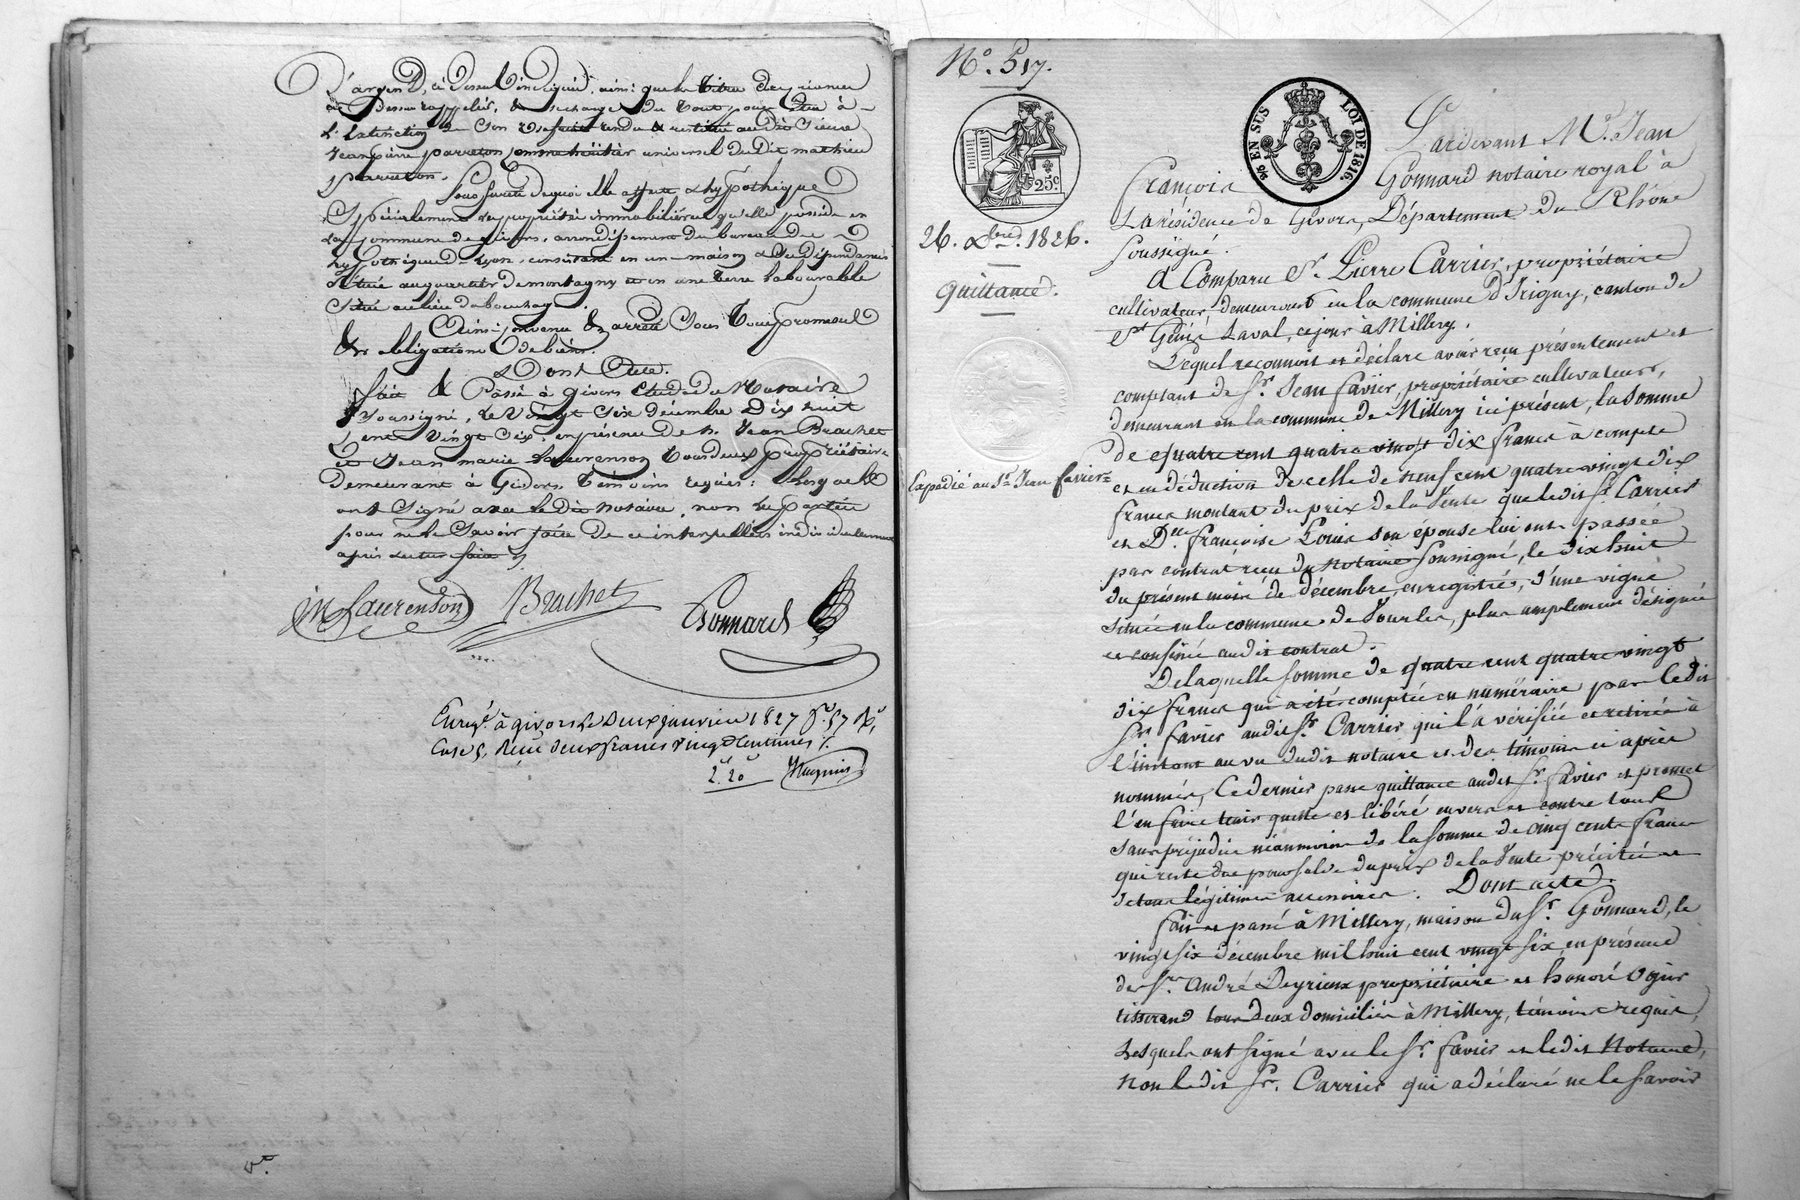 D'argent, ci dessus indiqué, ainsi que les titres de créance
ci dessus rappelés, en échange du tout pour être à
l'extinction de son rendu & restitué audit Sieur
Jean pierre parreton comme héritier universel dudit mathieu
parreton.
Pour sureté de quoi elle affecte & hypothèque
Spécialement les propriétés immobilières qu'elle possède en
la commune de givors, arrondissement du bureau des
hypothèques de Lyon, consistant en une maison & ses dépendances
située au quartier de montagny & en une terre labourable
située au lieu du
Ainsi convenu & arrêté Sous tous promesses
& obligations de biens.
Dont Acte.
fait & Passé à givors Etude du Notaire
Soussigné, le vingt six décembre Dix huit
cent vingt six, en présence de Srs. Jean Brachet
et Jean marie Laurenson tous deux propriétaires
demeurant à Givors témoins requis; lesquels
ont Signé avec le dit notaire, non les parties
pour ne le Savoir faire de ce interpellées individuellement
après lecture faite
JM Laurenson Brachet Gonnard
Enregé. à givors le deux janvier 1827 fo. 57 Ro.
Case 5, Reçu deux francs vingt centimes
2f. 20
Vo.
No. 517.
25c.
96 EN SUS LOI DE 1816.
26. Xbre. 1826.
Quittance.
Expédié au Sr. Jean favier
Pardevant Me. Jean
François Gonnard notaire royal à
La résidence de Givors, Département du Rhône
soussigné.
A Comparu Sr. Pierre Carrier, propriétaire
cultivateur, demeurant en la commune d'Irigny, canton de
St. Genis Laval, ce jour à Millery.
Lequel reconnoit et déclare avoir reçu présentement et
comptant de Sr. Jean Favier, propriétaire cultivateur,
demeurant en la commune de Millery ici présent, la somme
de quatre cent quatre vingt dix francs à compte
et en déduction de celle de neuf cent quatre vingt dix
francs montant du prix de la Vente que ledit Sr. Carrier
et De. françoise Louis son épouse lui ont passée
par contrat reçu du notaire soussigné, le dix huit
du présent mois de décembre, enregistré, d'une vigne
située en la commune de Vourles, plus amplement désignée
et confinée audit contrat.
De laquelle somme de quatre cent quatre vingt
dix francs qui a été comptée en numéraire par ledit
Sr. favier audit Sr. Carrier qui l'a vérifiée et retirée à
l'instant au vu dudit notaire et des témoins ci après
nommés, Ce dernier passe quittance audit Sr. favier et promet
l'en faire tenir quitte et libéré envers et contre tous
sans préjudice néanmoins de la somme de cinq cents francs
qui reste due pour solde du prix de la Vente précitée et
de tous légitimes accessoires. Dont acte.
fait et passé à Millery, maison du Sr. Gonnard, le
vingt six décembre mil huit cent vingt six en présence
de Srs. André Deyrieux propriétaire et honoré Ogier
tisserand tous deux domiciliés à Millery, témoins requis,
Lesquels ont signé avec le Sr. favier et ledit Notaire,
Non ledit Sr. Carrier qui a déclaré ne le savoir